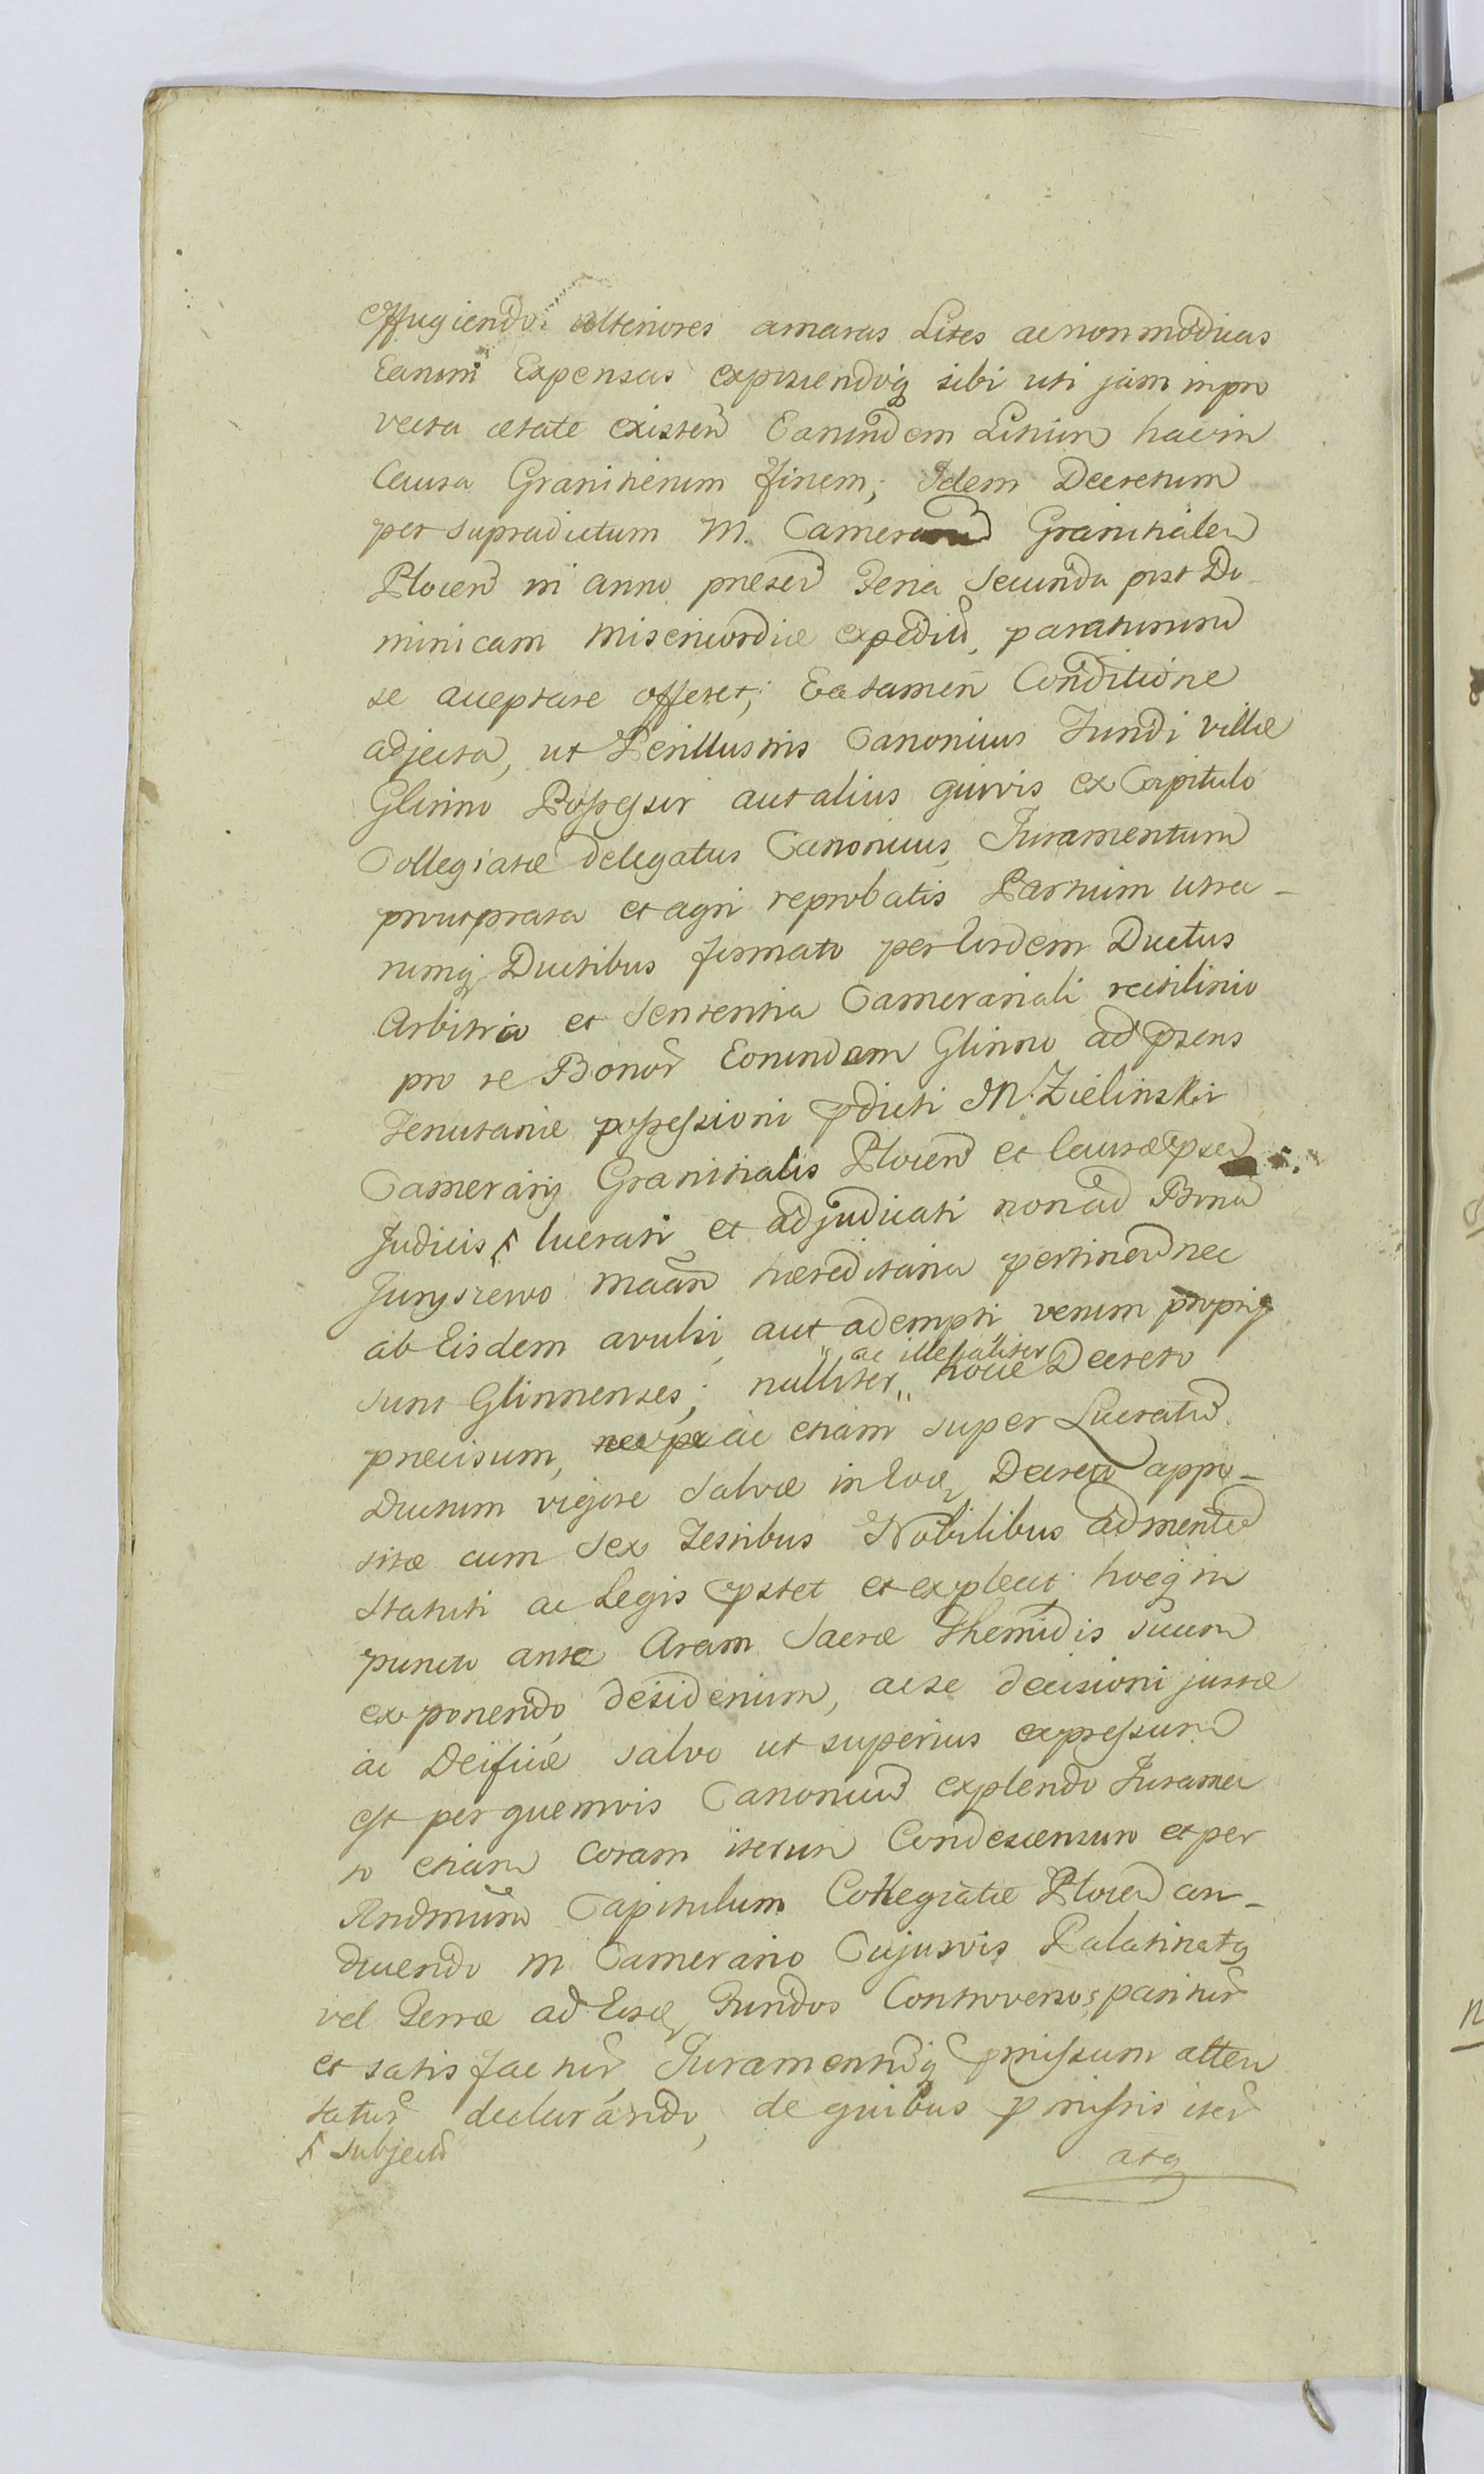 effugiendo ulteriores amaras Lites ac non modicas
Earum Expensas experiendoq sibi uti jam in pro
vecta ætate existen Earundem Litium hac in
Causa Granitierum finem; Idem Decretum
per supradictum M. Camerar Granitialem
Plocen in anno præsen Feria Secunda post Do
minicam Misericordiæ expeditu, paratissimu
se acceptare offeret; Ea tamen Conditione
adjecta, ut Perillustris Canonicus Fundi villæ
Glinno Possessor aut alius quivis ex Capitulo
Collegiatæ delegatus Canonicus Juramentum
prout prata et agri reprobatis Partium utra-
rumq Ductibus firmato per Eosdem Ductus
Arbitrio et Sententia Camerariali rectilinio
pro re Bonor Eorundem Glinno ad præns
Tenutariæ possessioni pdicti M. Zielinski
Camerarij Granitialis Plocen et Causæ psen
Judicis ⌈ lucrati et adjudicati non ad Bona
Juryszewo maan hæreditaria pertinen nec
ab Eisdem avulsi, aut adempti verum proprij
sunt Glinnenses; nulliter " ac illegaliter " hocce Decreto
præcisum, ac etiam super Lucratu
Ductum vigore salvæ in Eod Decreto appo-
sitæ cum Sex Testibus Nobilibus ad mentem
Statuti ac Legis pstet et expleat hocq in
puncto ante Aram Sacræ Themidis suum
exponendo desiderium, ac se decisioni justæ
ac Deificæ salvo ut superius expressum
est per quemvis Canonicum explendo Juramen
to etiam coram iterum Condescensuro et per
Rndmum Capitulum Collegiatæ Plocen con-
ducendo M Camerario Cujusvis Palatinatq
vel Terræ ad Eosd Fundos Controversos pariter
et satisfactur Juramentoq pmissum atten
tatur declarando, de quibus pmissis iter
⌈ subject
atq